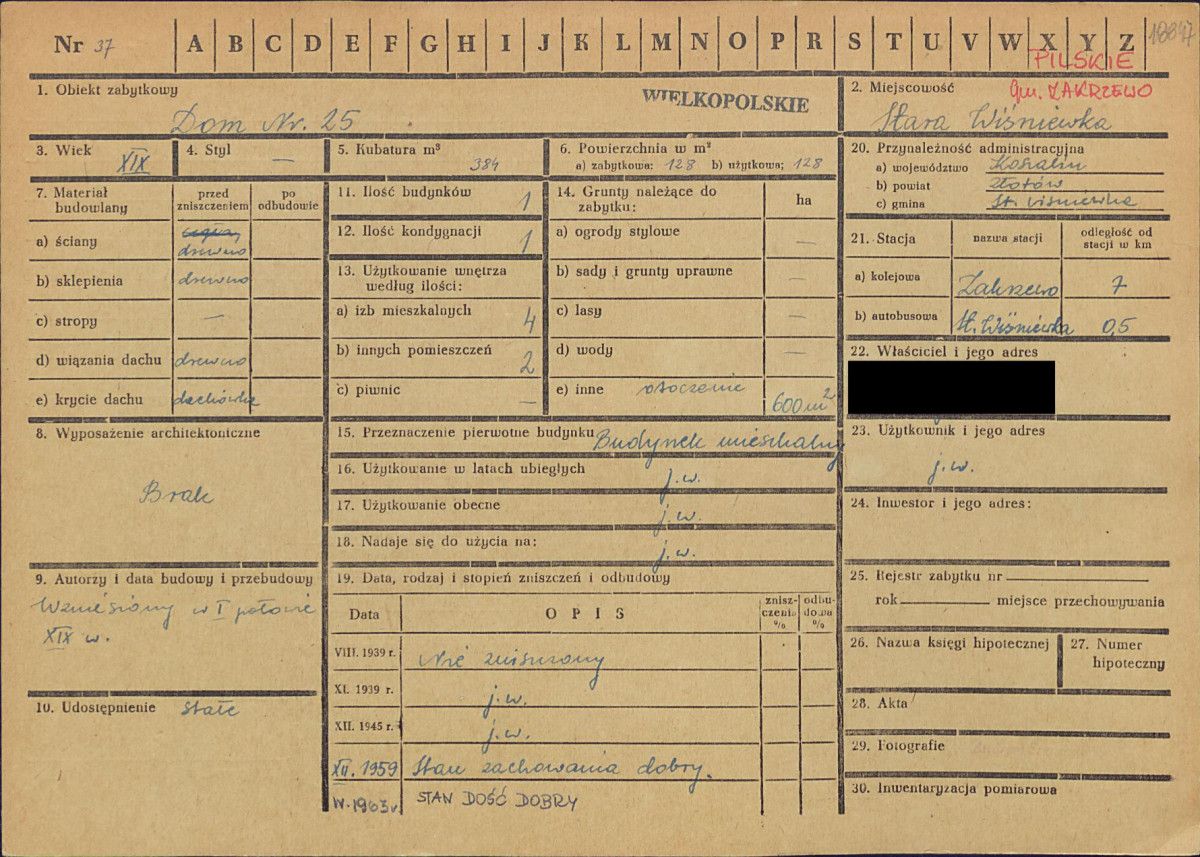 Nr 37 A B C D E F G H I J K L M N O P R S T U V W X Y Z
PILSKIE
gm. ZAKRZEWO
1. Obiekt zabytkowy
WIELKOPOLSKIE
Dom Nr. 25
2. Miejscowość
Stara Wiśniewka
3. Wiek
XIX
4. Styl
—
5. Kubatura m³
384
6. Powierzchnia w m²
a) zabytkowa: 128 b) użytkowa: 128
20. Przynależność administracyjna
a) województwo Koszalin
b) powiat Złotów
c) gmina St. Wiśniewka
7. Materiał budowlany
przed zniszczeniem
po odbudowie
a) ściany
drewno
b) sklepienia drewno
c) stropy —
d) wiązania dachu drewno
e) krycie dachu dachówka
11. Ilość budynków 1
12. Ilość kondygnacji 1
13. Użytkowanie wnętrza według ilości:
a) izb mieszkalnych 4
b) innych pomieszczeń 2
c) piwnic —
14. Grunty należące do zabytku:
ha
a) ogrody stylowe —
b) sady i grunty uprawne —
c) lasy —
d) wody —
e) inne otoczenie 600 m²
21. Stacja
nazwa stacji
odległość od stacji w km
a) kolejowa Zakrzewo 7
b) autobusowa St. Wiśniewka 0,5
22. Właściciel i jego adres
8. Wyposażenie architektoniczne
Brak
15. Przeznaczenie pierwotne budynku Budynek mieszkalny
16. Użytkowanie w latach ubiegłych j.w.
17. Użytkowanie obecne j.w.
18. Nadaje się do użycia na: j.w.
23. Użytkownik i jego adres
j.w.
24. Inwestor i jego adres:
9. Autorzy i data budowy i przebudowy
Wzniesiony w I połowie
XIX w.
19. Data, rodzaj i stopień zniszczeń i odbudowy
Data
OPIS
znisz-
czenia
%
odbu-
dowa
%
VIII. 1939 r. Nie zniszczony
XI. 1939 r. j.w.
XII. 1945 r. j.w.
XII. 1959 Stan zachowania dobry.
IV. 1963 r. STAN DOŚĆ DOBRY
25. Rejestr zabytku nr
rok miejsce przechowywania
26. Nazwa księgi hipotecznej
27. Numer hipoteczny
10. Udostępnienie stałe
28. Akta
29. Fotografie
30. Inwentaryzacja pomiarowa